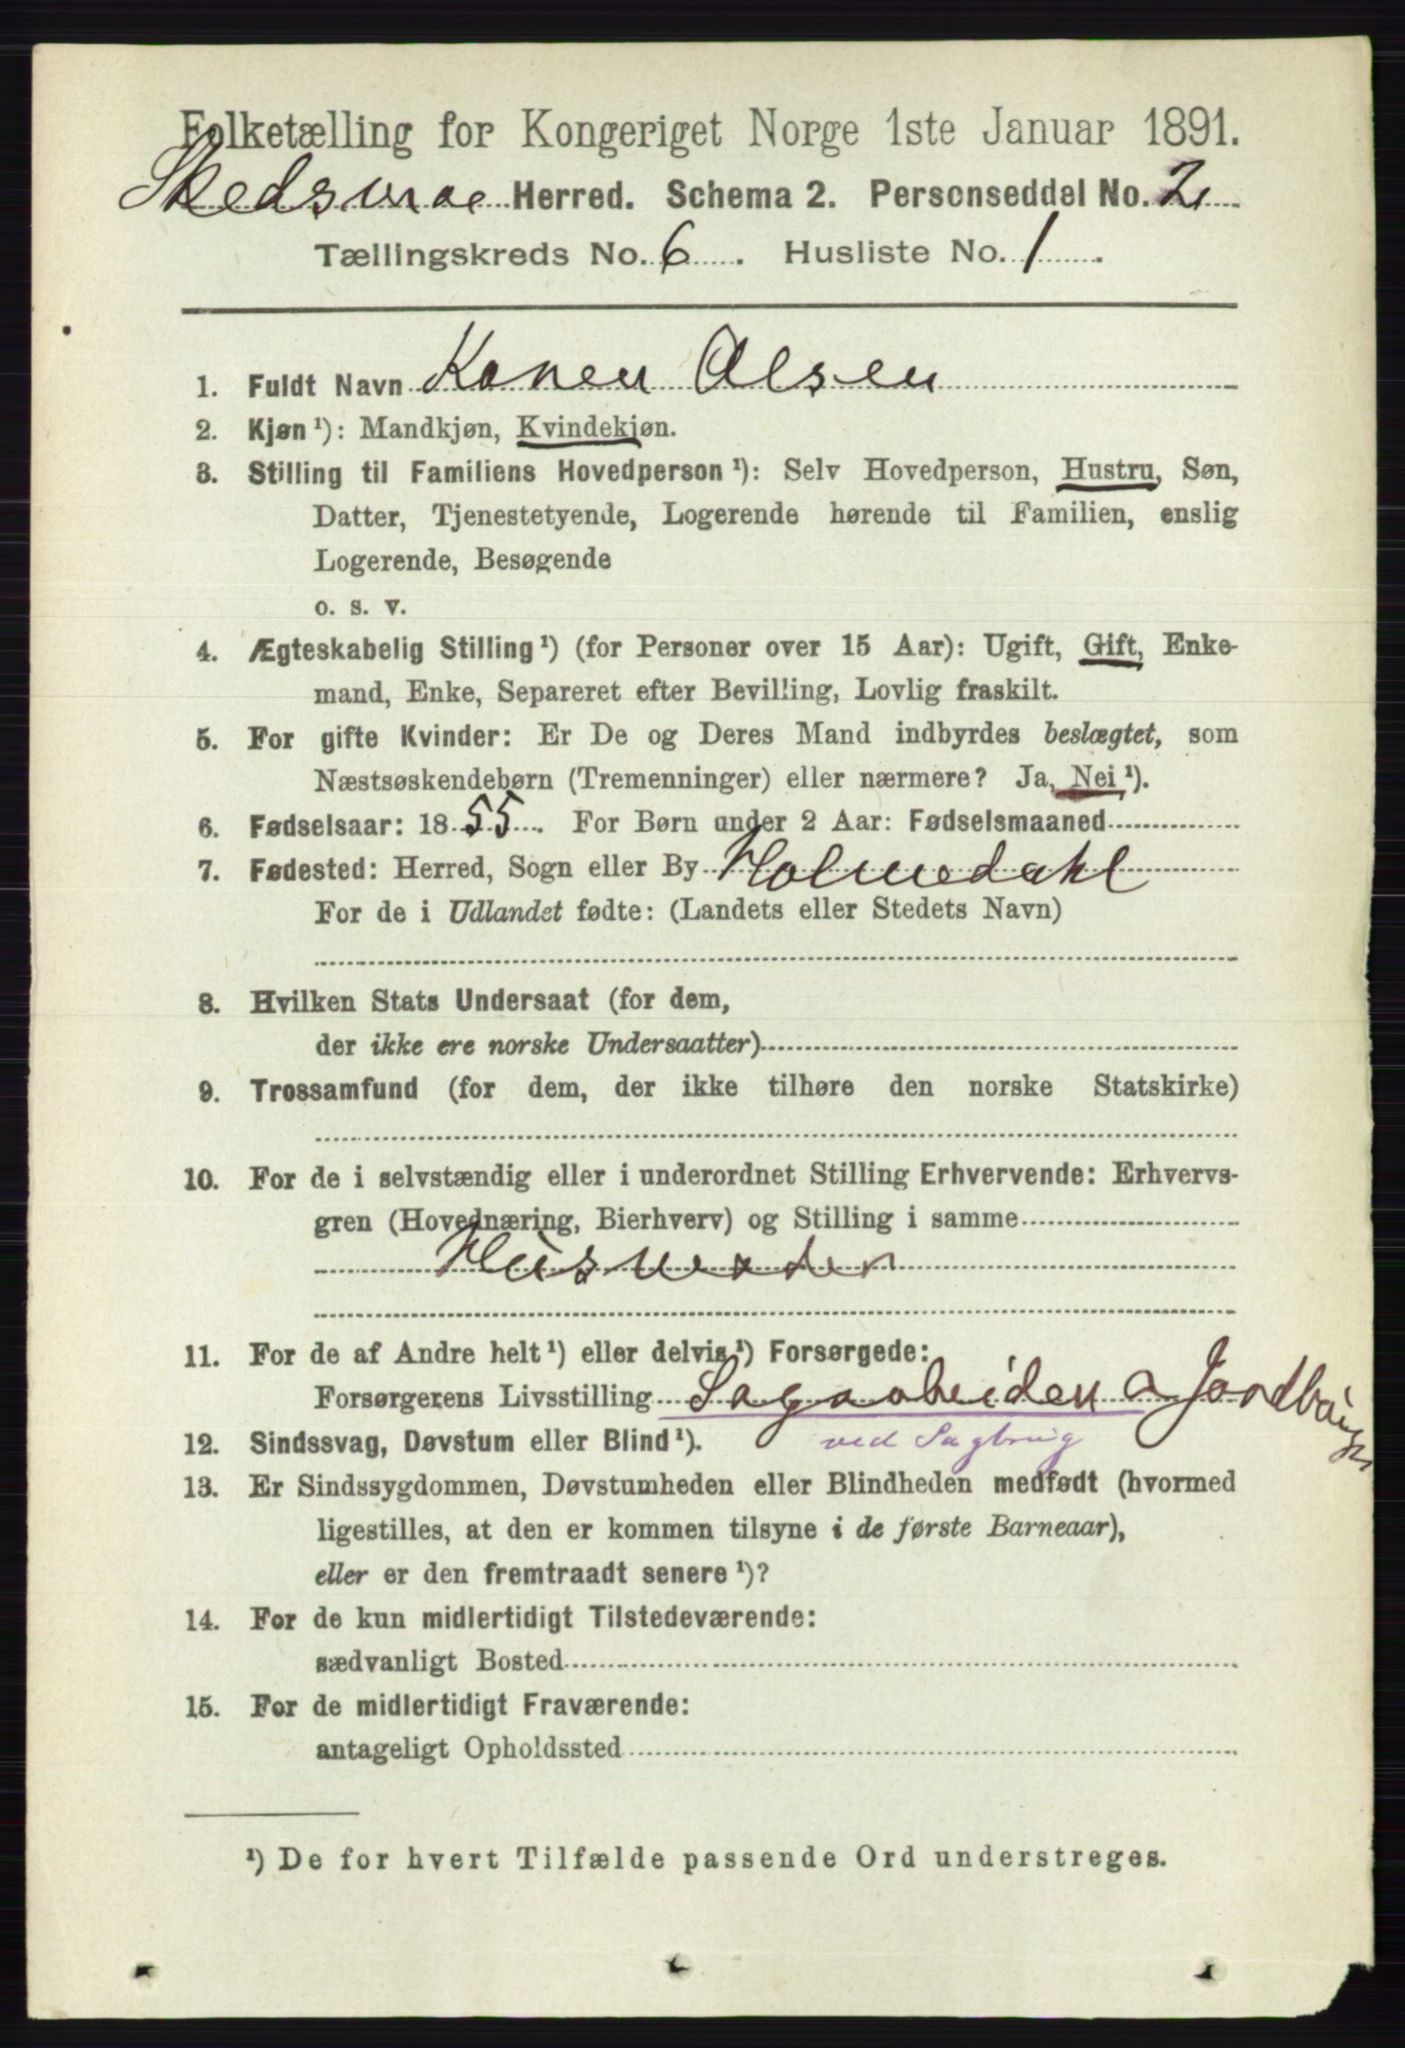 Folketælling for Kongeriget Norge 1ste Januar 1891.
Skedsmoe Herred. Schema 2. Personseddel No. 2
Tællingskreds No. 6. Husliste No. 1.
1. Fuldt Navn Karen Olsen
2. Kjøn ¹): Mandkjøn, Kvindekjøn.
3. Stilling til Familiens Hovedperson ¹): Selv Hovedperson, Hustru, Søn,
Datter, Tjenestetyende, Logerende hørende til Familien, enslig
Logerende, Besøgende
o. s. v.
4. Ægteskabelig Stilling ¹) (for Personer over 15 Aar): Ugift, Gift, Enke-
mand, Enke, Separeret efter Bevilling, Lovlig fraskilt.
5. For gifte Kvinder: Er De og Deres Mand indbyrdes beslægtet, som
Næstsøskendebørn (Tremenninger) eller nærmere? Ja, Nei ¹).
6. Fødselsaar: 1855. For Børn under 2 Aar: Fødselsmaaned
7. Fødested: Herred, Sogn eller By Holmedahl
For de i Udlandet fødte: (Landets eller Stedets Navn)
8. Hvilken Stats Undersaat (for dem,
der ikke ere norske Undersaatter)
9. Trossamfund (for dem, der ikke tilhøre den norske Statskirke)
10. For de i selvstændig eller i underordnet Stilling Erhvervende: Erhvervs-
gren (Hovednæring, Bierhverv) og Stilling i samme
Husmoder
11. For de af Andre helt ¹) eller delvis ¹) Forsørgede:
Forsørgerens Livsstilling Sagarbeider
12. Sindssvag, Døvstum eller Blind ¹). ved Sagbrug
13. Er Sindssygdommen, Døvstumheden eller Blindheden medfødt (hvormed
ligestilles, at den er kommen tilsyne i de første Barneaar),
eller er den fremtraadt senere ¹)?
14. For de kun midlertidigt Tilstedeværende:
sædvanligt Bosted
15. For de midlertidigt Fraværende:
antageligt Opholdssted
¹) De for hvert Tilfælde passende Ord understreges.